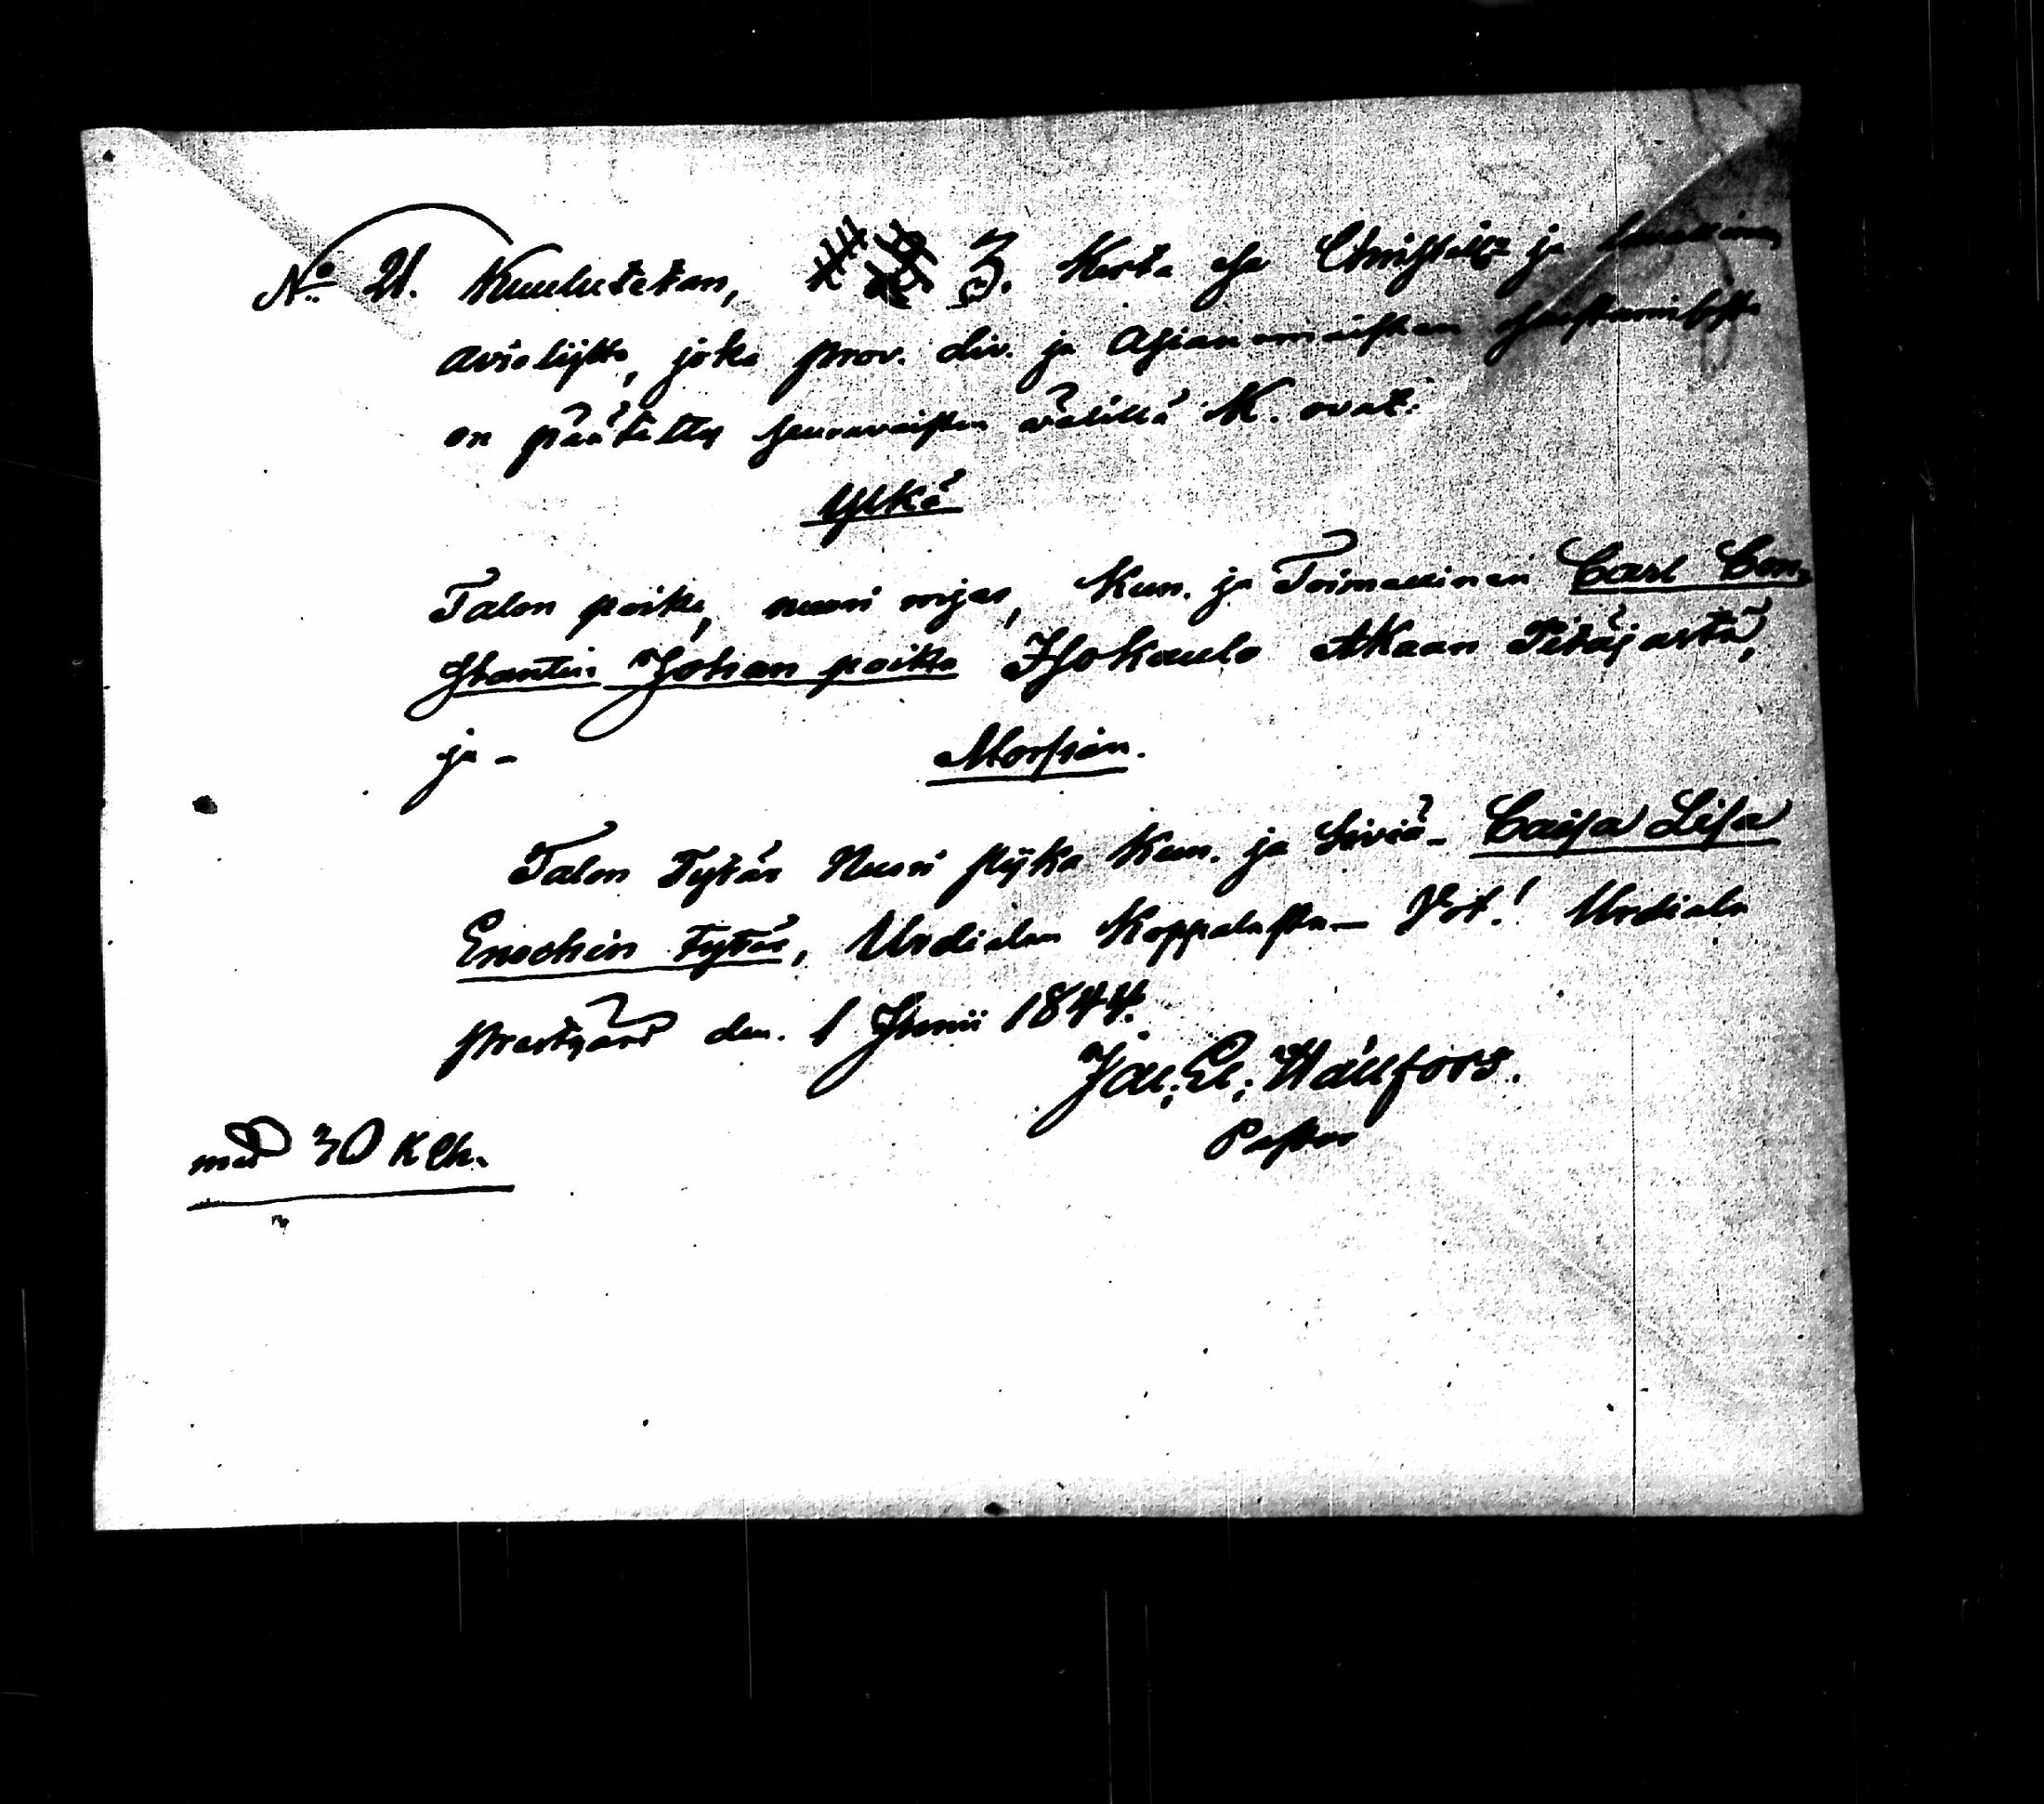 No 21. Kuulutetan, 3. Kerta Christill: ja
avioliitto, joka prov. div. ja Asianomaisten
on päätetty seuraavaisten välillä N. ovat.
Ylkä
Talon poika, nuori mjes, Kun. ja Toimellinen Carl Con-
stantin Johan poika Isokaula Akaan Pitäjästä,
ja -
Morsian.
Talon Tytär Nuori pijka Kun. ja Siviä - Caisa Lisa
Enochin tytär, Urdialan Koppalasta - Vot! Urdiala
Prestgård den. 1 Junii 1844.
Jac. El. Wällfors.
Pastor
med 30 K